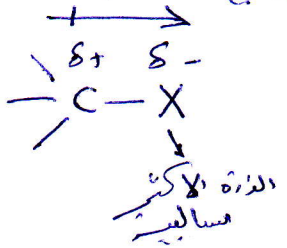 δ+ δ-
C — X
الذرة الأكثر
سالبية